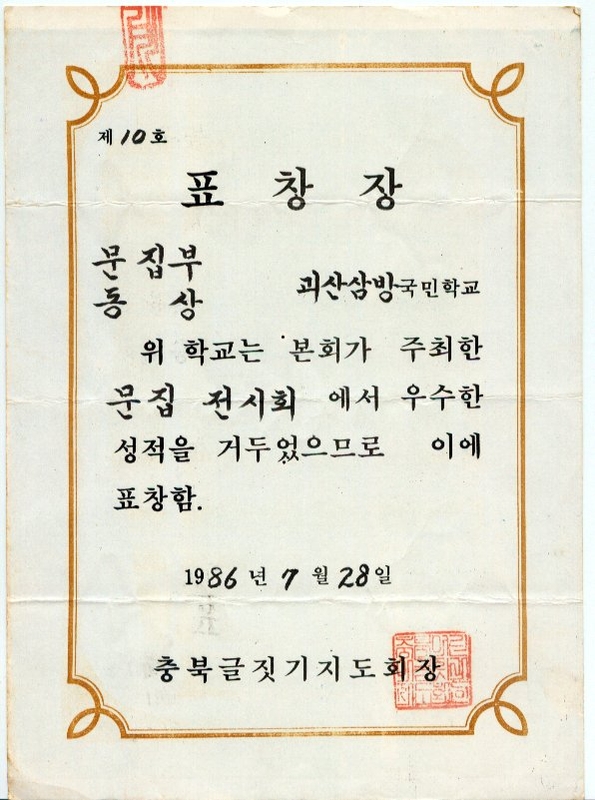 제 10 호
표 창 장
문집부
동 상
괴산삼방국민학교
위 학교는 본회가 주최한
문집 전시회 에서 우수한
성적을 거두었으므로 이에
표창함.
1986 년 7 월 28 일
충북글짓기지도회장